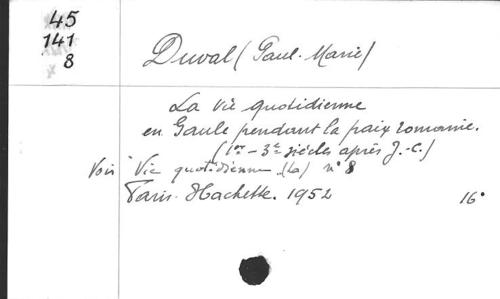 45
141
8
Duval (Paul-Marie)
La vie quotidienne
en Gaule pendant la paix romaine.
(1er - 3e siècles après J.-C.)
Voir Vie quotidienne (La) n° 8
Paris. Hachette. 1952 16°